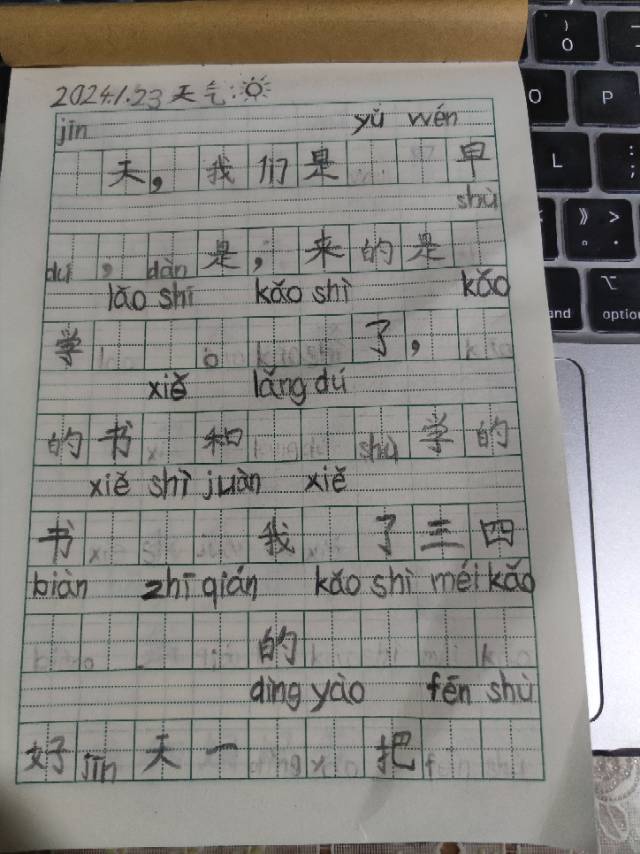 2024.1.23 天气:
jīn yǔ wén
天,我们是 早
shù
dú , dàn 是, 来的是
lǎo shī kǎo shì kǎo
学 了,
xiě lǎng dú
的书 和 shù 学的
xiě shì juàn xiě
书 我 了三四
biàn zhī qián kǎo shì méi kǎo
的
dìng yào fēn shù
好 jīn 天一 把
)
0
O
P
L
:
;
>
.
option